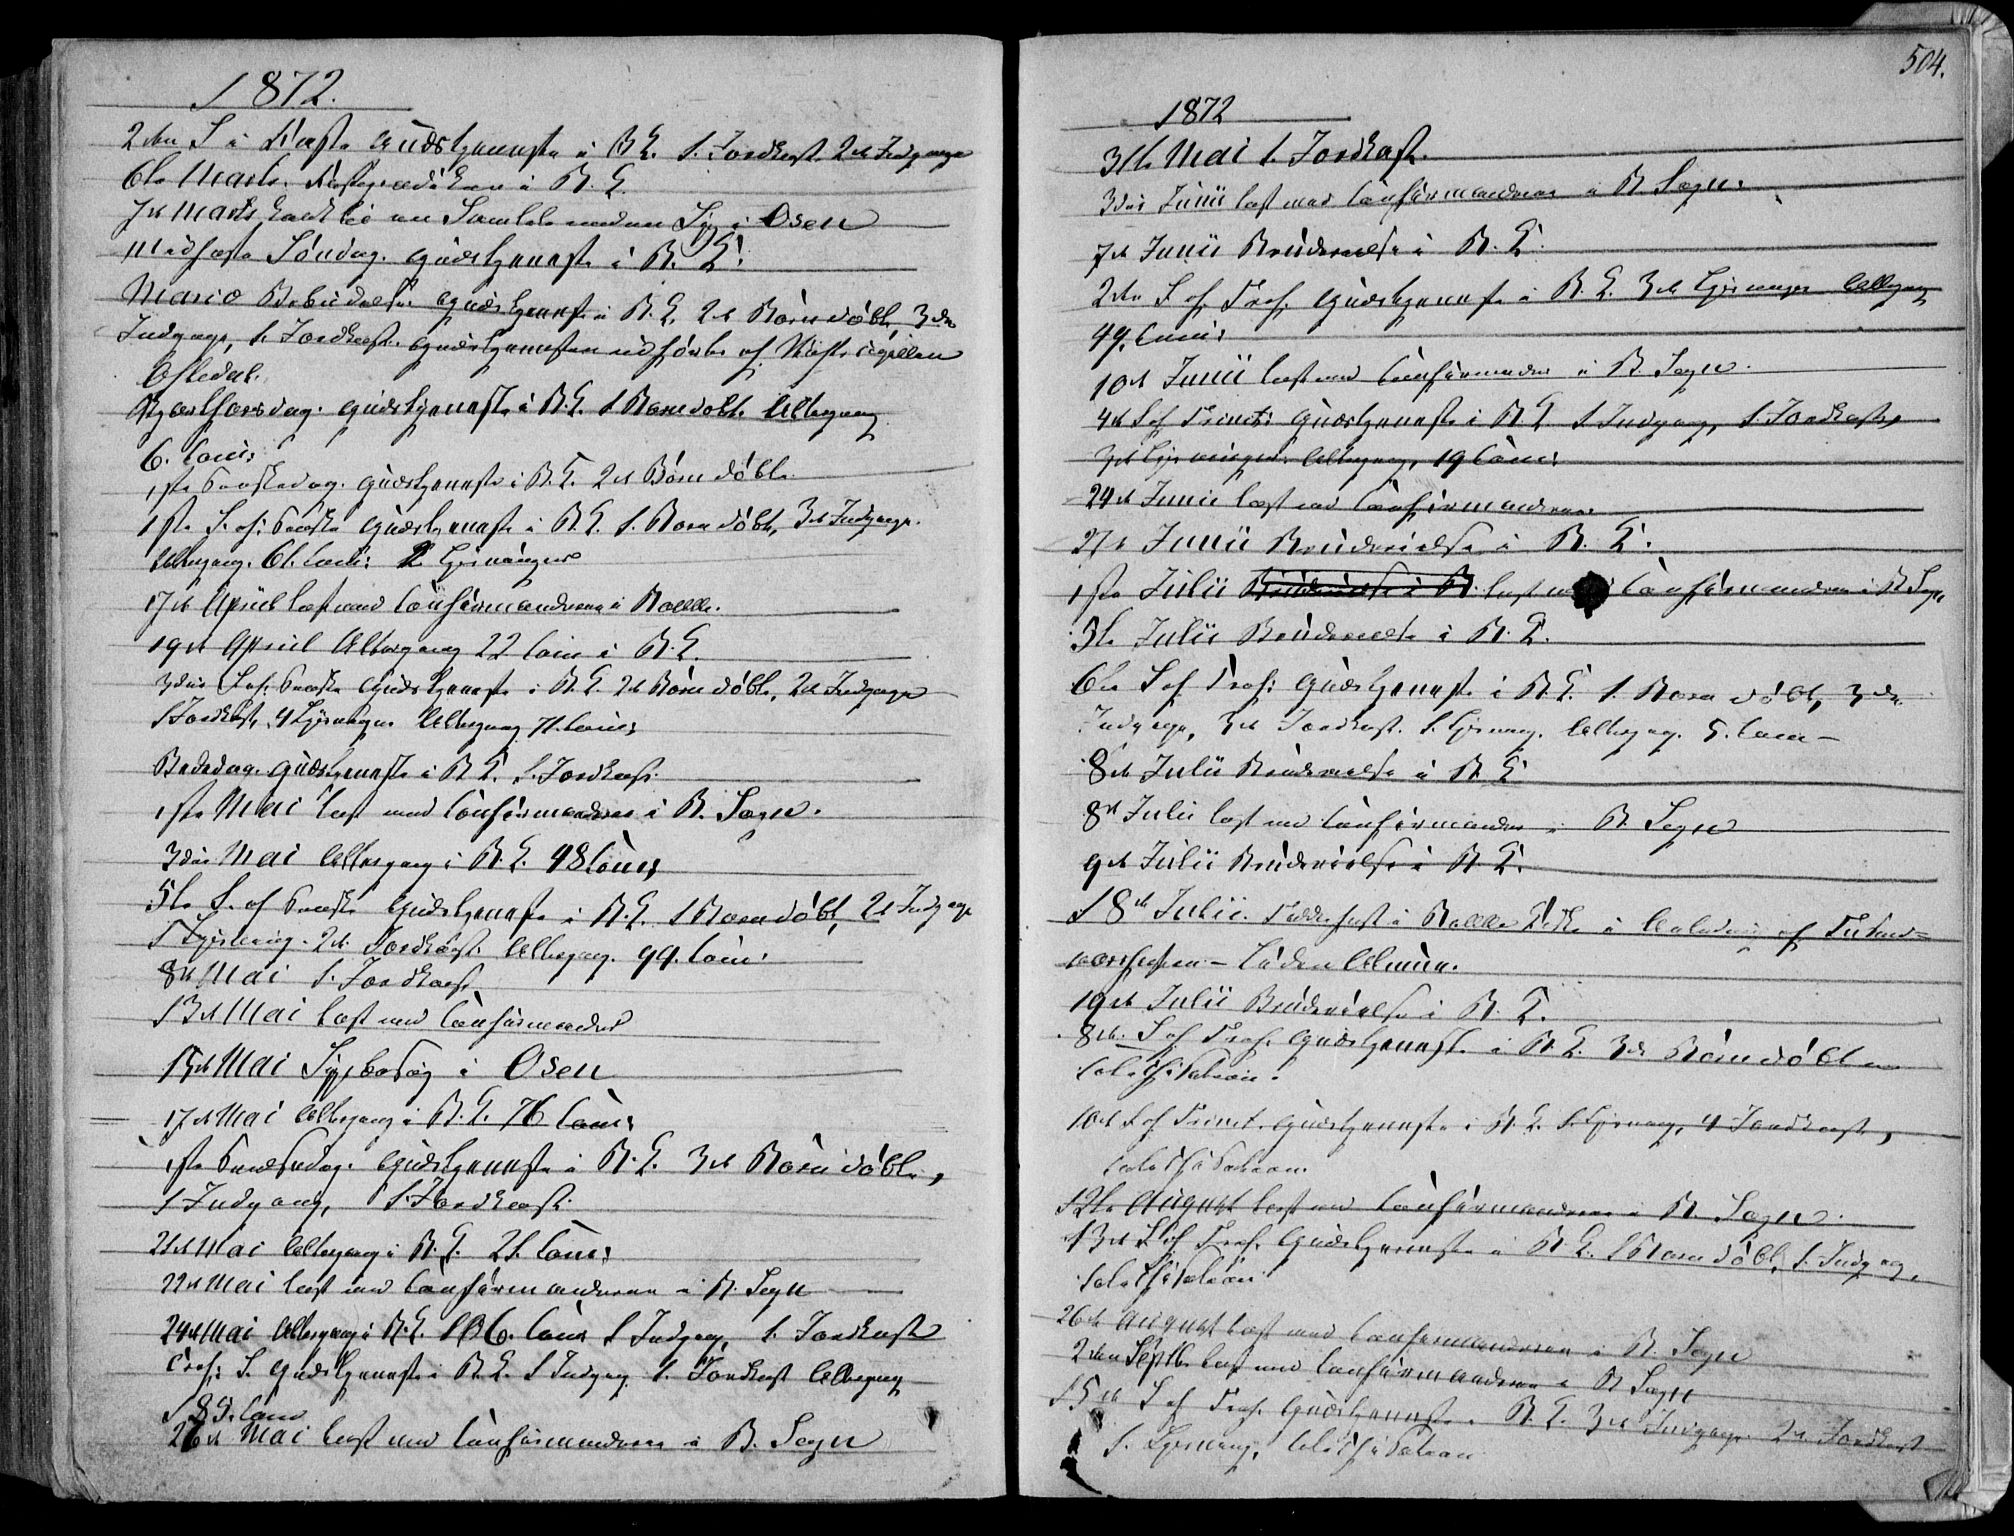 1872.
2den S i Faste Gudstjeneste i B K. 1. Jordkast. 2de Indgange
6te Marts. Fasteprædiken i B. K.
7de Marts holdt en Samtale med en Syg i Osen
Midfaste Søndag. Gudstjeneste i B. K.
Mariæ Bebudelse. Gudstjeneste i B. K. 2de Børn døbte, 3de
Indgange, 1. Jordkast. Gudstjenesten udførtes af
Ofstedal.
Skjærthorsdag. Gudstjeneste i B. K. 1 Barn døbt. Altergang
6. Com:
1ste Paaskedag. Gudstjeneste i B. K. 2de Børn døbte.
1ste S. ef. Paaske Gudstjeneste i B. K. 1. Barn døbt, 3de Indgange.
Altergang. 61. Com: 2. Lysninger
17de April læst med Confirmanderne i
19de April Altergang 22 Com i B. K.
3die S. ef. Paaske Gudstjeneste i B. K. 2de Børn døbte, 2de Indgange
1 Jordkast, 4 Lysninger Altergang 71. Com:
Bededag. Gudstjeneste i B. K. 1. Jordkast.
1ste Mai læst med Confirmanderne i B. Sogn.
3die Mai Altergang i B. K. 48 Com:
5te S. ef Paaske Gudstjeneste i B. K. 1 Barn døbt, 2de Indgange
1 Lysning. 2de Jordkast. Altergang. 99. Com:
8de Mai 1. Jordkast
13de Mai læst med Confirmander
15de Mai Sygbesøg i Osen
17de Mai Altergang i B. K. 76 Com:
1ste Pindsedag. Gudstjeneste i B. K. 3de Børn døbte,
1 Indgang, 1. Jordkast.
21de Mai Altergang i B. K. 21. Com:
22de Mai læst med Confirmanderne i B. Sogn
24de Mai Altergang i B. K. 106. Com: 1 Indgang, 1. Jordkast
Tref: S. Gudstjeneste i B. K. 1 Indgang. 1. Jordkast Altergang
185. Com
26de Mai læst med Confirmanderne i B. Sogn
504.
1872
31te Mai 1. Jordkast.
3die Junii læst med Confirmanderne i B. Sogn.
7de Junii Brudevielse i B. K.
2den S ef. Tref. Gudstjeneste i B. K. 3de Lysninger Altergang
49. Com:
10de Junii læst med Confirmander i B. Sogn.
4de S ef Trinit: Gudstjeneste i B. K. 1 Indgang, 1. Jordkast,
3de Lysninger. Altergang, 19 Com:
24de Junii læst med Confirmanderne
27de Junii Brudevielse i B. K.
1ste Julii Brudevielse i B læst med Confirmanderne i B. Sogn
5te Julii Brudevielse i B. K.
6te S ef Tref: Gudstjeneste i B. K. 1. Barn døbt, 3de
Indgange, 3de Jordkast. 1. Lysning. Altergang. 5. Com
8de Julii Brudevielse i B. K.
8de Julii læst med Confirmander i B. Sogn
9de Julii Brudevielse i B. K.
18de Julii. i Kirke i Anledning af
19de Julii Brudevielse i B. K.
8de S ef Tref. Gudstjeneste i B. K. 3de Børn døbte
10de S ef Trinit. Gudstjeneste i B. K. 1. Lysning, 4 Jordkast,
12te August læst med Confirmanderne i B. Sogn.
13de S ef Tref. Gudstjeneste i B. K. 1 Barn døbt, 1. Indgang,
26de August læst med Confirmanderne i B. Sogn
2den Septb. læst med Confirmanderne i B Sogn
15de S ef Tref. Gudstjeneste i B. K. 3de Indgange 2de Jordkast
1. Lysning,